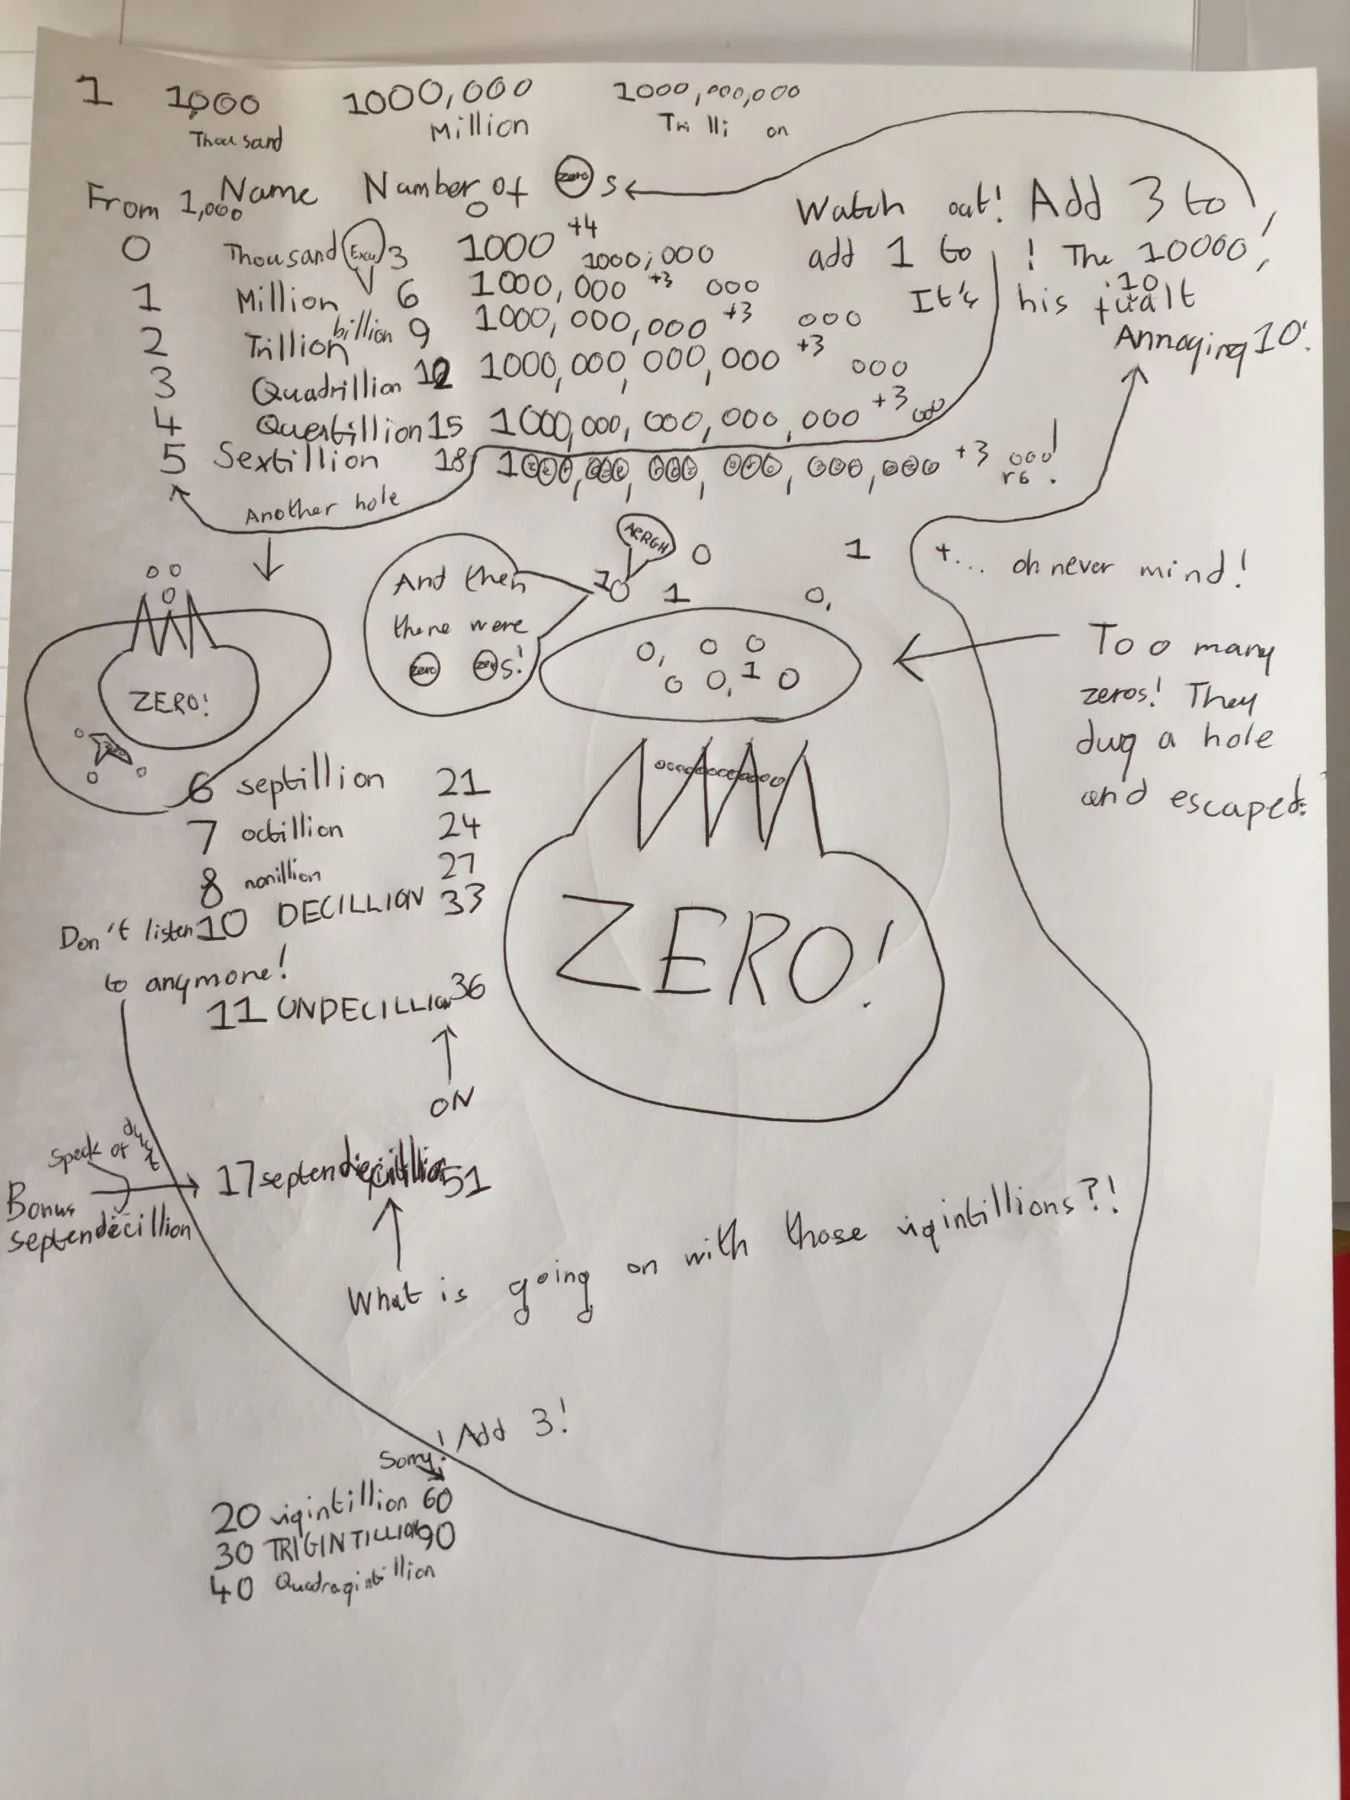 1 1,000 1000,000 1000,000,000
Thousand Million Trilli on
From 1,000 Name Number of zero s
0 Thousand 3 1000 +4 1000,000
1 Million 6 1000,000 +3 000
2 Trillion billion 9 1000,000,000 +3 000
3 Quadrillion 12 1000,000,000,000 +3 000
4 15 1000,000,000,000,000 +3 000
5 Sextillion 18 1000,000,000,000,000,000 +3 000!
Another hole
Watch out! Add 3 to ,
add 1 to ! The 10000!
It's his
10
Annoying 10!
+... oh never mind!
AERGH
10 0 1
1 0,
And then
there were
zero zero s!
0, 0 0
0 0, 1 0
Too many
zeros! They
dug a hole
and escaped.
0 0
0
ZERO!
ZERO!
6 septillion 21
7 octillion 24
8 nonillion 27
10 DECILLION 33
Don't listen
to anymore!
11 UNDECILLION 36
ON
Speck of dust
17 septendecillion 51
Bonus
septendecillion
What is going on with those viqintillions?!
Sorry! Add 3!
20 viqintillion 60
30 TRIGINTILLION 90
40 Quadraqintillion